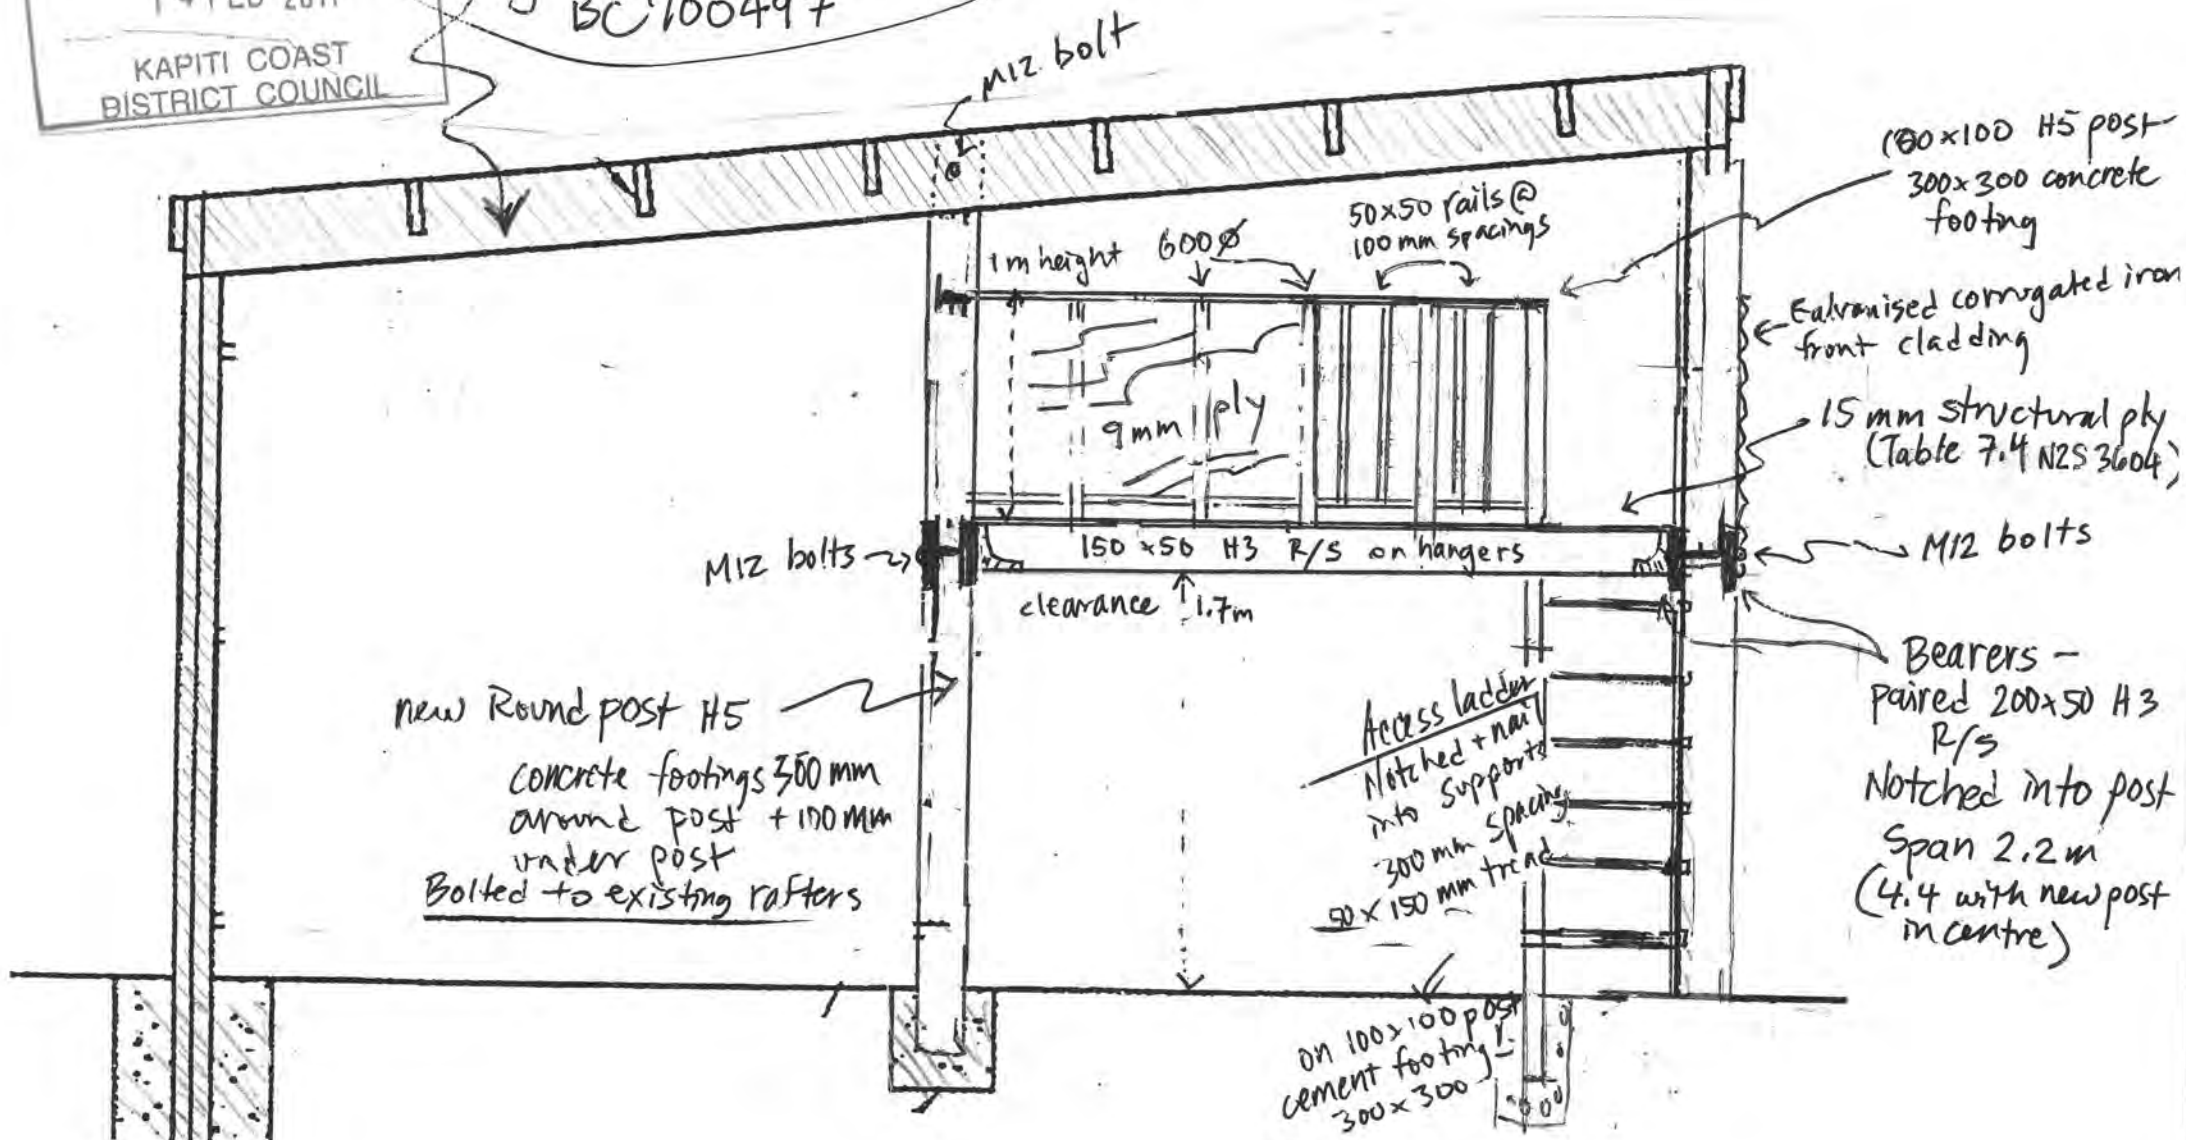 KAPITI COAST
DISTRICT COUNCIL
BC100497
M12 bolt
100x100 H5 post
300x300 concrete
footing
50x50 rails @
100mm spacings
1m height
600
Galvanised corrugated iron
front cladding
9mm ply
15mm structural ply
(Table 7.4 NZS 3604)
M12 bolts
150x50 H3 R/S on hangers
M12 bolts
clearance 1.7m
Bearers -
paired 200x50 H3
R/S
Notched into post
Span 2.2m
(4.4 with new post
in centre)
new Round post H5
concrete footings 300mm
around post + 100mm
under post
Bolted to existing rafters
Access ladder
Notched + nail
into supports
300mm spacing
50x150mm tread
on 100x100 post
cement footing
300x300